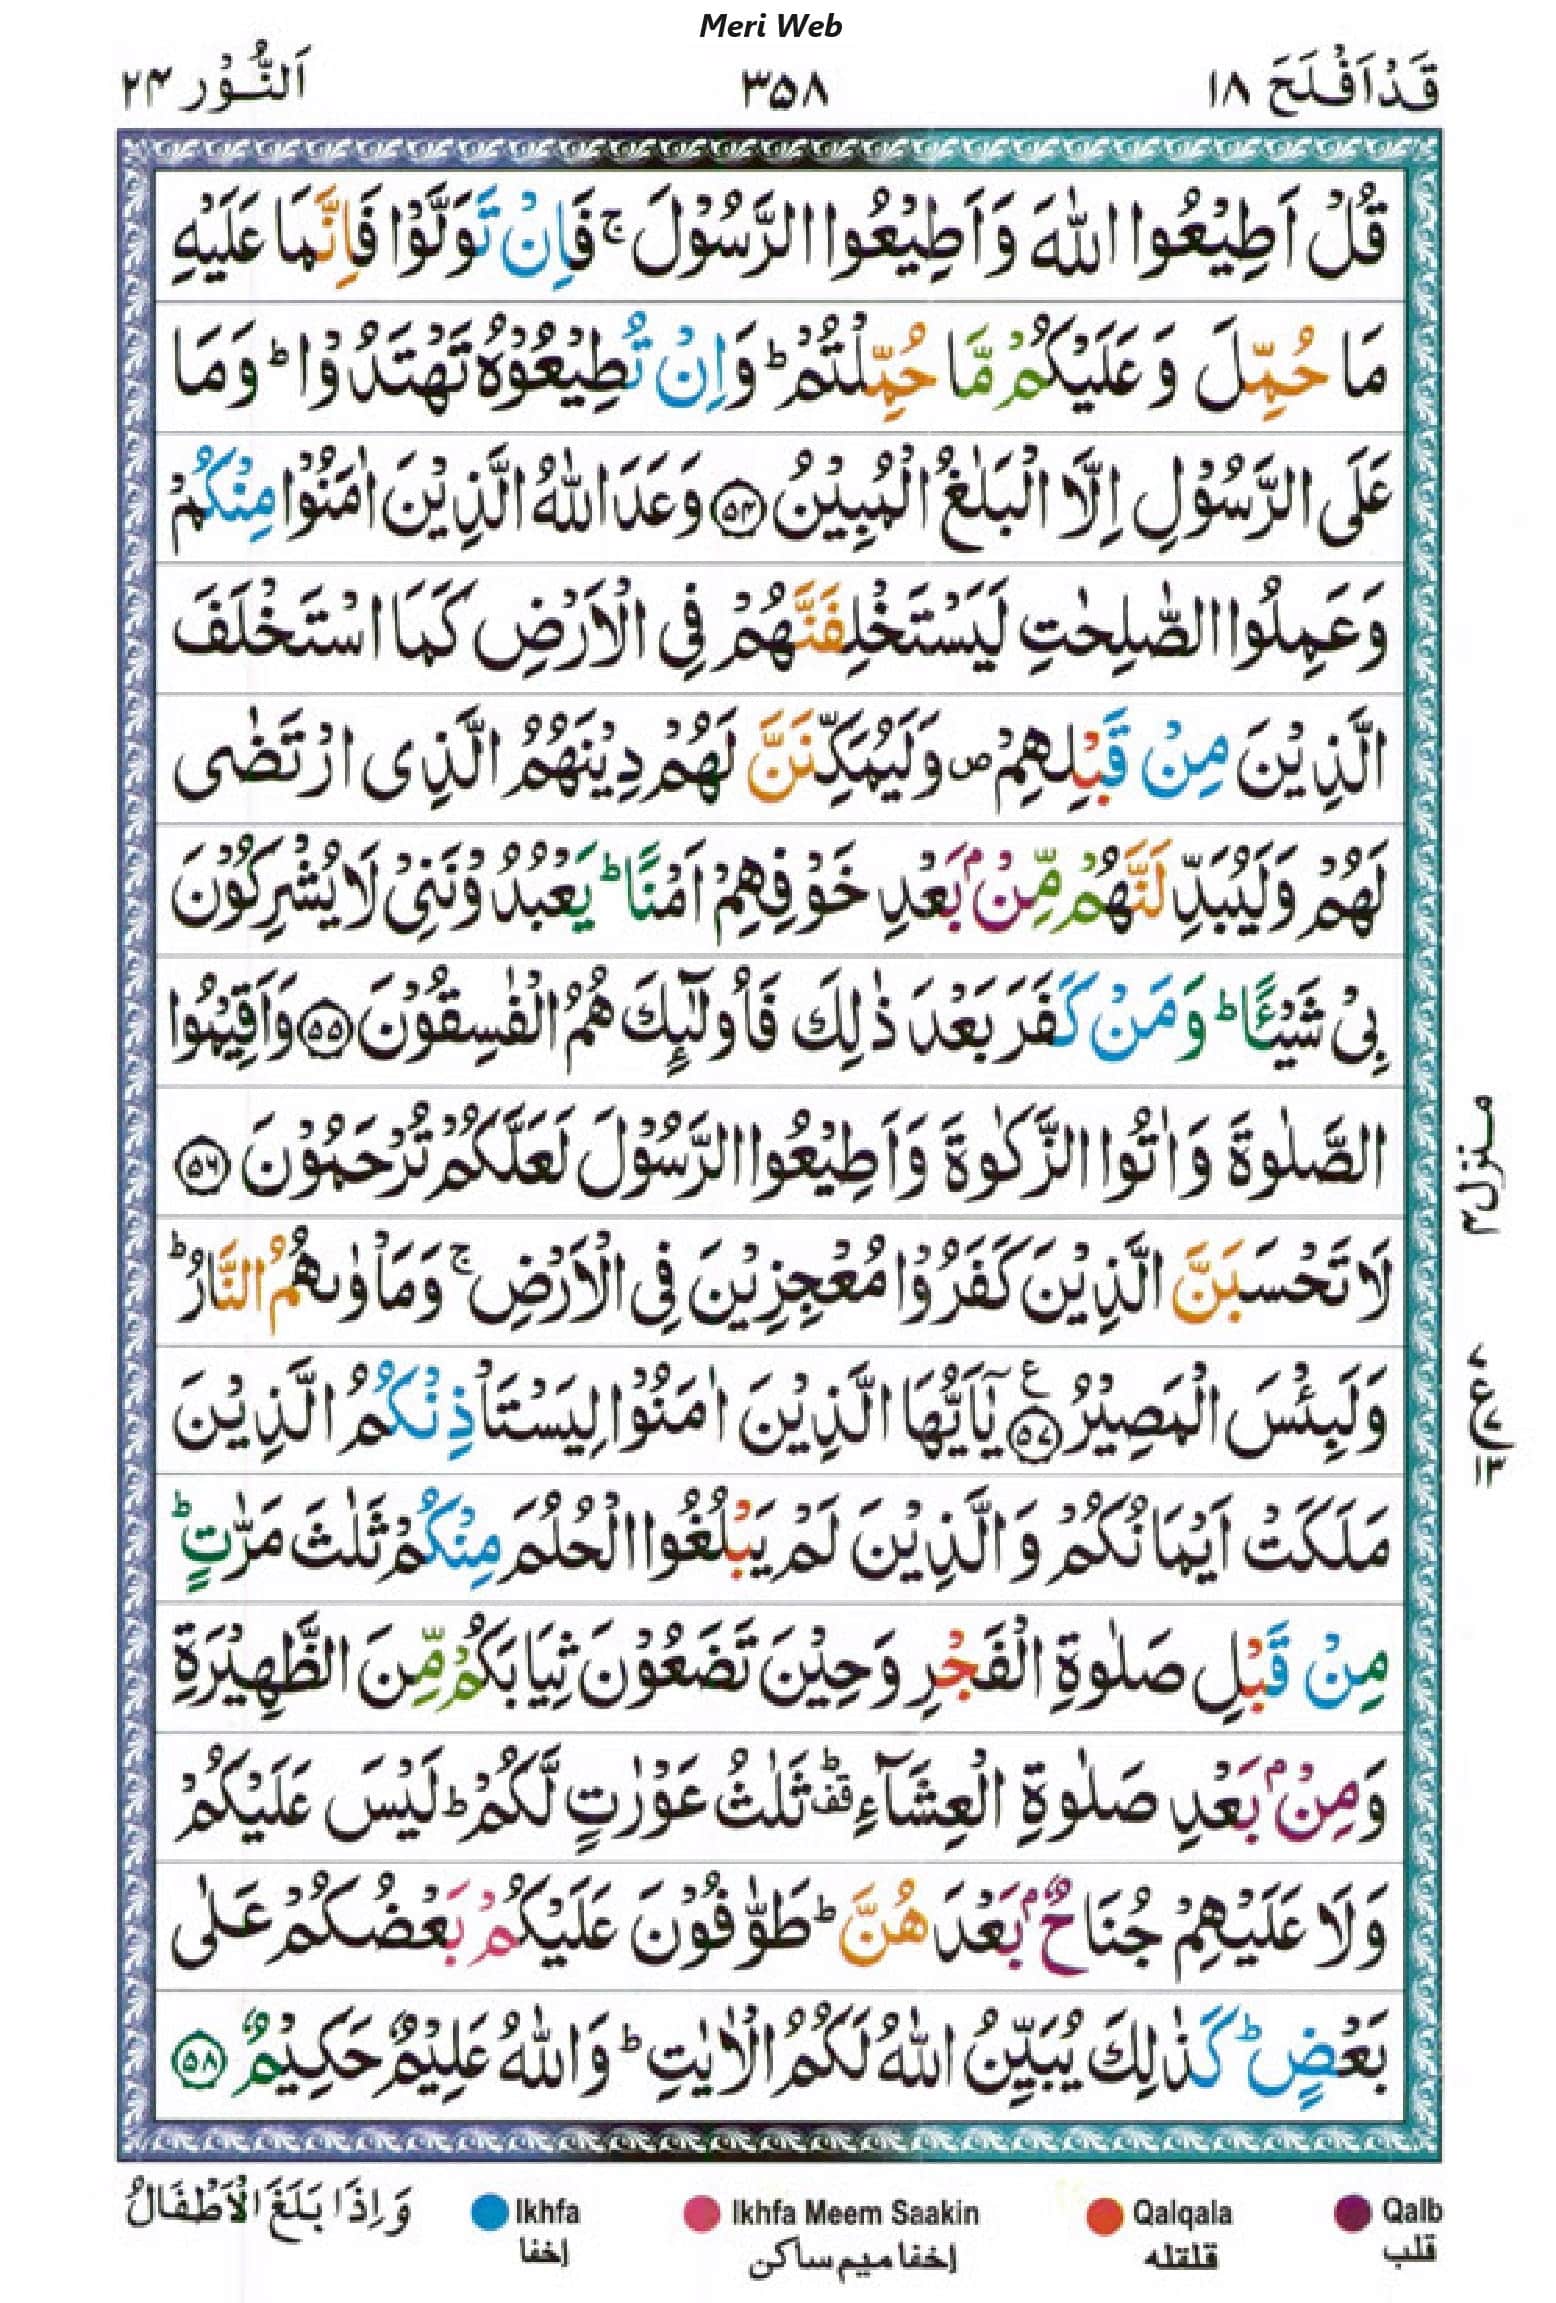 Meri Web
قَدْ اَفْلَحَ ۱۸
۳۵۸
اَلنُّوْر ۲۴
قُلْ اَطِيْعُوا اللّٰهَ وَاَطِيْعُوا الرَّسُوْلَ ۚ فَاِنْ تَوَلَّوْا فَاِنَّمَا عَلَيْهِ
مَا حُمِّلَ وَعَلَيْكُمْ مَّا حُمِّلْتُمْ ؕ وَاِنْ تُطِيْعُوْهُ تَهْتَدُوْا ؕ وَمَا
عَلَى الرَّسُوْلِ اِلَّا الْبَلٰغُ الْمُبِيْنُ ۵۴ وَعَدَ اللّٰهُ الَّذِيْنَ اٰمَنُوْا مِنْكُمْ
وَعَمِلُوا الصّٰلِحٰتِ لَيَسْتَخْلِفَنَّهُمْ فِى الْاَرْضِ كَمَا اسْتَخْلَفَ
الَّذِيْنَ مِنْ قَبْلِهِمْ ۪ وَلَيُمَكِّنَنَّ لَهُمْ دِيْنَهُمُ الَّذِى ارْتَضٰى
لَهُمْ وَلَيُبَدِّلَنَّهُمْ مِّنْۢ بَعْدِ خَوْفِهِمْ اَمْنًا ؕ يَعْبُدُوْنَنِىْ لَا يُشْرِكُوْنَ
بِىْ شَيْـًٔا ؕ وَمَنْ كَفَرَ بَعْدَ ذٰلِكَ فَاُولٰٓئِكَ هُمُ الْفٰسِقُوْنَ ۵۵ وَاَقِيْمُوا
الصَّلٰوةَ وَاٰتُوا الزَّكٰوةَ وَاَطِيْعُوا الرَّسُوْلَ لَعَلَّكُمْ تُرْحَمُوْنَ ۵۶
لَا تَحْسَبَنَّ الَّذِيْنَ كَفَرُوْا مُعْجِزِيْنَ فِى الْاَرْضِ ۚ وَمَاْوٰىهُمُ النَّارُ ؕ
وَلَبِئْسَ الْمَصِيْرُ ۵۷ ع يٰۤاَيُّهَا الَّذِيْنَ اٰمَنُوْا لِيَسْتَاْذِنْكُمُ الَّذِيْنَ
مَلَكَتْ اَيْمَانُكُمْ وَالَّذِيْنَ لَمْ يَبْلُغُوا الْحُلُمَ مِنْكُمْ ثَلٰثَ مَرّٰتٍ ؕ
مِنْ قَبْلِ صَلٰوةِ الْفَجْرِ وَحِيْنَ تَضَعُوْنَ ثِيَابَكُمْ مِّنَ الظَّهِيْرَةِ
وَمِنْۢ بَعْدِ صَلٰوةِ الْعِشَآءِ قف ثَلٰثُ عَوْرٰتٍ لَّكُمْ ؕ لَيْسَ عَلَيْكُمْ
وَلَا عَلَيْهِمْ جُنَاحٌۢ بَعْدَهُنَّ ؕ طَوّٰفُوْنَ عَلَيْكُمْ بَعْضُكُمْ عَلٰى
بَعْضٍ ؕ كَذٰلِكَ يُبَيِّنُ اللّٰهُ لَكُمُ الْاٰيٰتِ ؕ وَاللّٰهُ عَلِيْمٌ حَكِيْمٌ ۵۸
منزل ۴
۷
ع ۷
۱۳
وَاِذَا بَلَغَ الْاَطْفَالُ
Ikhfa
اخفا
Ikhfa Meem Saakin
اخفا میم ساکن
Qalqala
قلقله
Qalb
قلب